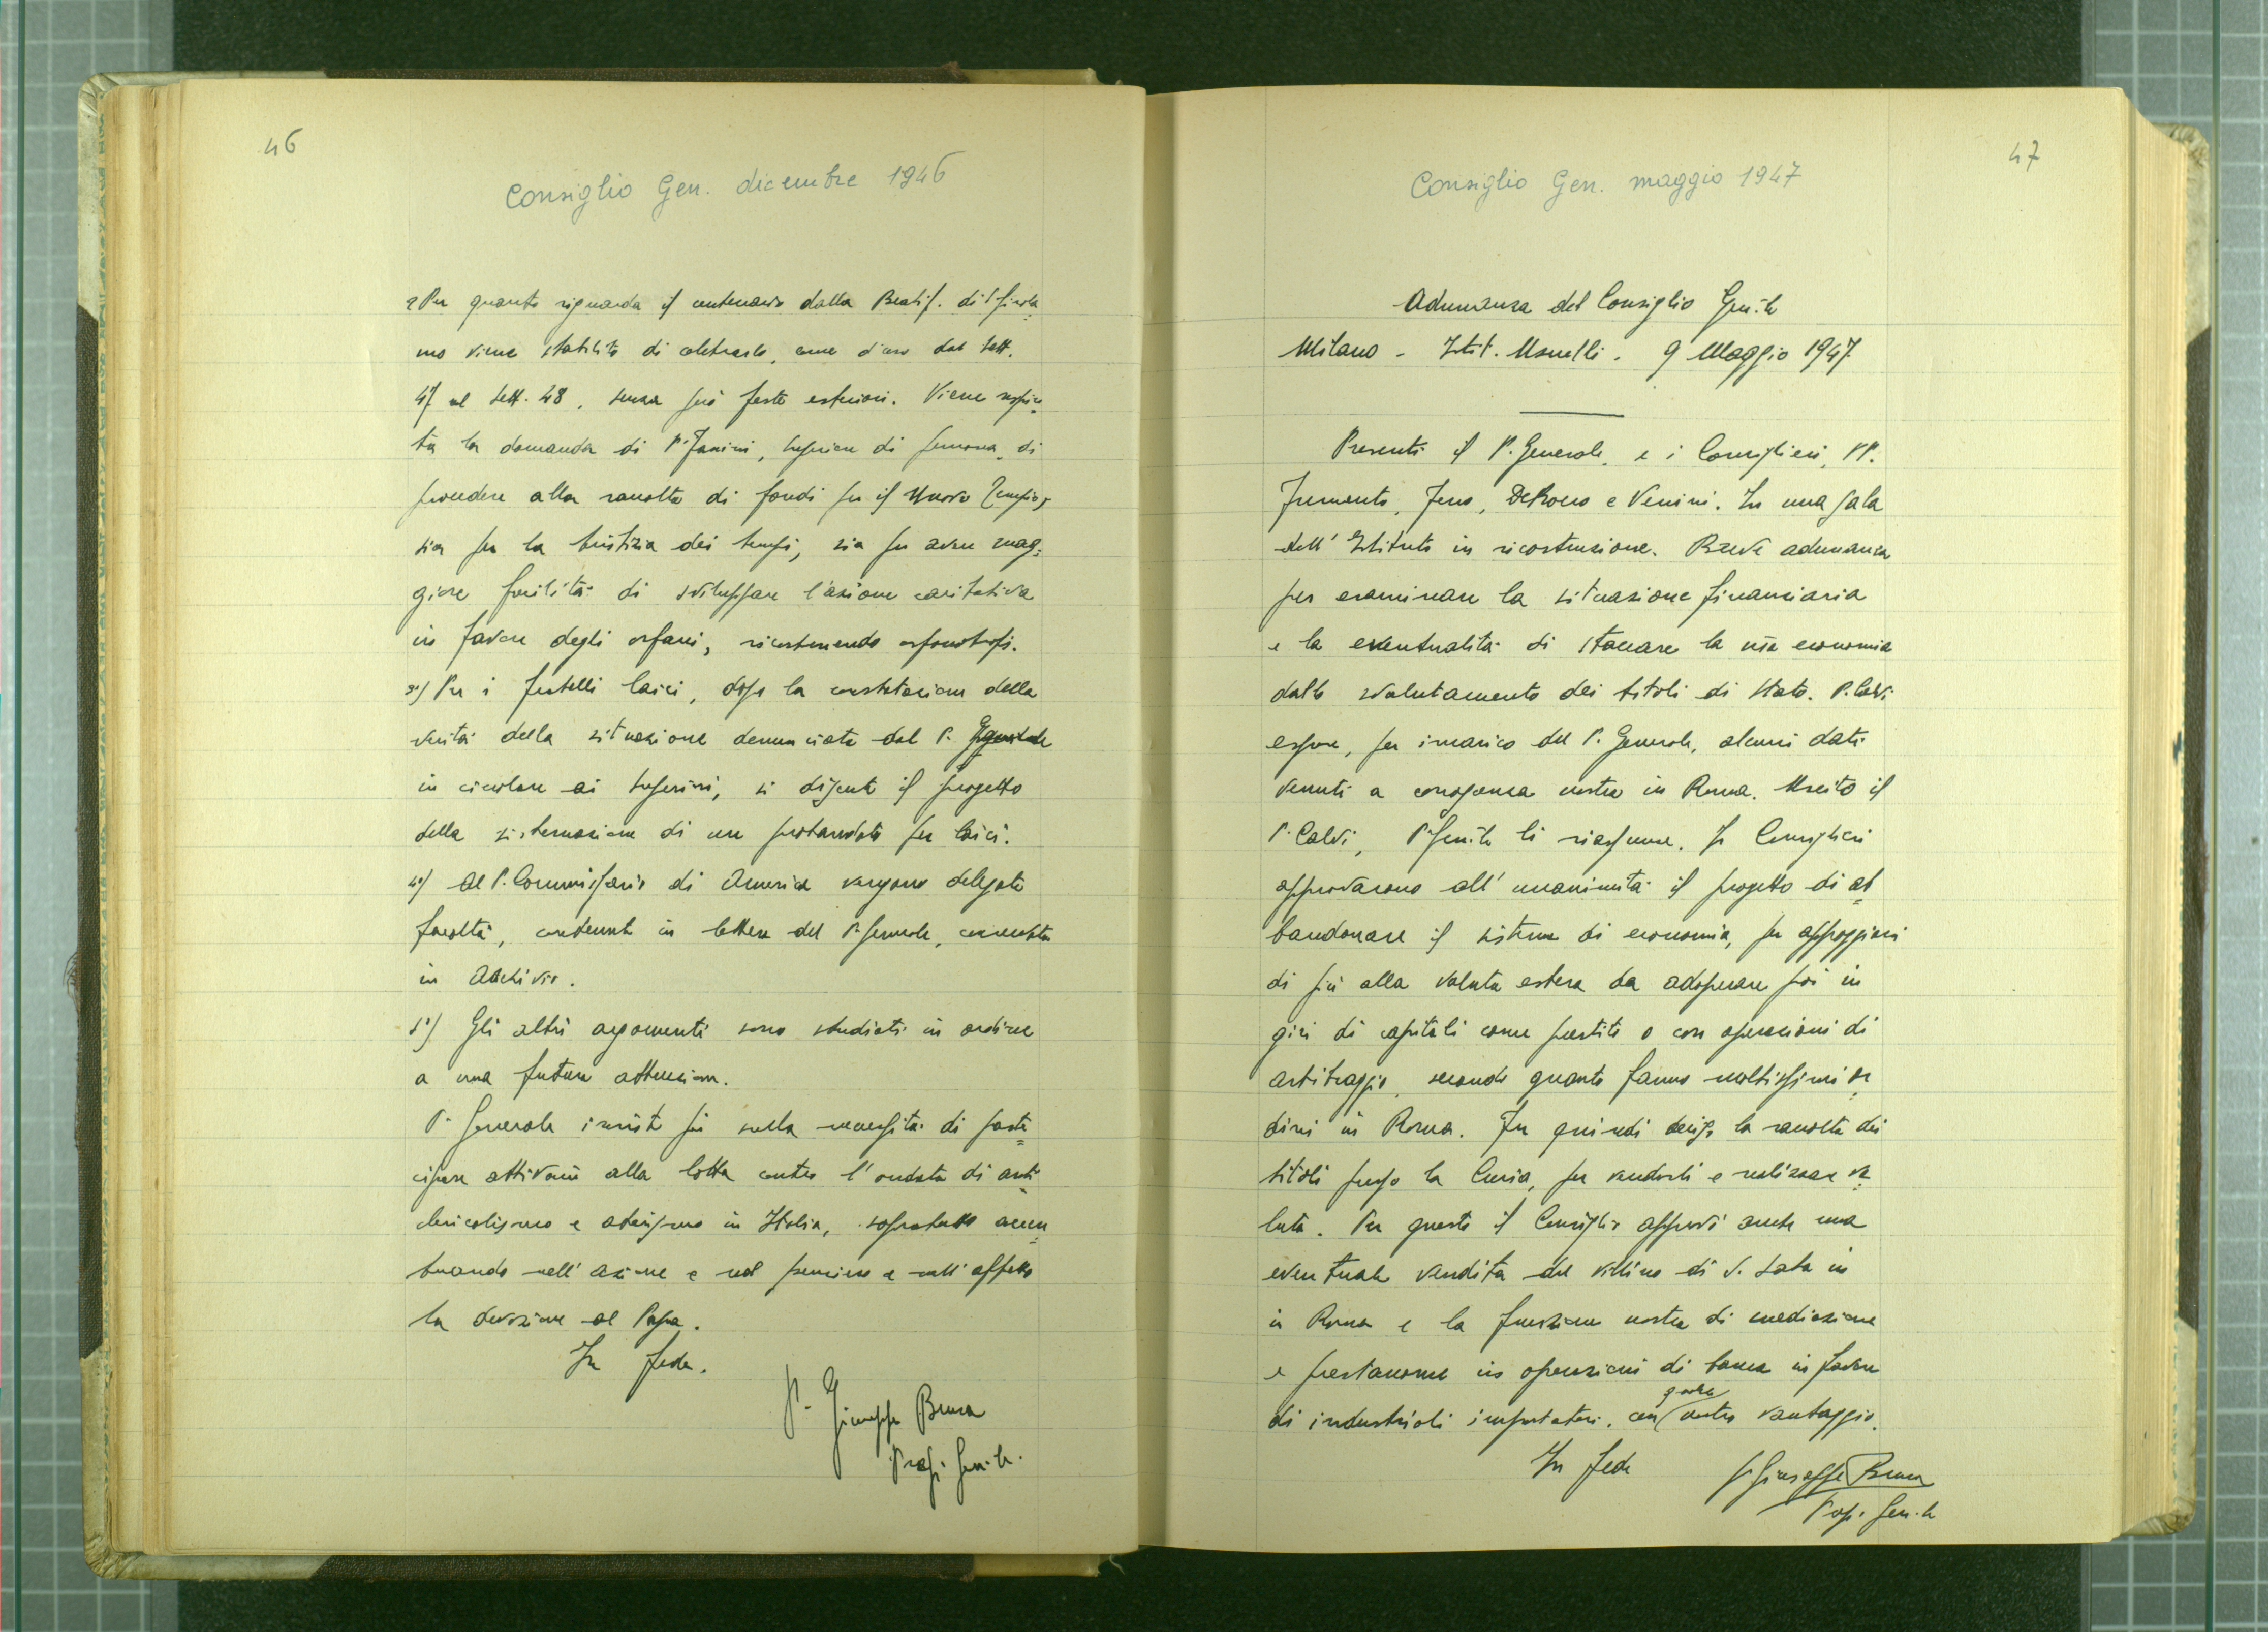 46
Consiglio Gen. dicembre 1946
2 Per quanto riguarda il centenario della Beatif. di S. Girola=
mo viene stabilito di celebrarlo, come d'uso dal Sett.
47 al Sett. 48, senza però feste esteriori. Viene respin=
ta la domanda di P. Zanini, Superiore di, di
procedere alla raccolta di fondi per il Nuovo Tempio,
sia per la tristizia dei tempi, sia per avere mag=
giore facilità di sviluppare l'azione caritativa
in favore degli orfani, ricostruendo orfanotrofi.
3°) Per i fratelli laici, dopo la constatazione della
verità della situazione denunciata dal P. Generale
in circolare ai Superiori, si discute il progetto
della sistemazione di un probandato per laici.
4°) Al P. Commissario di America vengono delegate
facoltà, contenute in lettera del P. Generale, conservata
in Archivio.
5°) Gli altri argomenti sono studiati in ordine
a una futura attuazione.
P. Generale insiste più sulla necessità di parte=
cipare attivam alla lotta contro l'ondata di anti=
clericalismo e ateismo in Italia, soprattutto accen=
tuando nell'azione e nel pensiero e nell'affetto
la devozione al Papa.
In fede.
P. Giuseppe Brusa
Prep. Gen.le.
47
Consiglio Gen. maggio 1947
Adunanza del Consiglio Gen.le
Milano - Istit. Usuelli. 9 Maggio 1947
Presenti il P. Generale, e i Consiglieri, PP.
Frumento, Ferro, DeRocco e Venini. In una sala
dell'Istituto in ricostruzione. Breve adunanza
per esaminare la situazione finanziaria
e la eventualità di staccare la nra economia
dallo svalutamento dei titoli di Stato. P. Calvi
espone, per incarico del P. Generale, alcuni dati
venuti a conoscenza nostra in Roma. Uscito il
P. Calvi, P. Gen.le li riassume. I Consiglieri
approvarono all'unanimità il progetto di ab=
bandonare il sistema di economia, per appoggiarsi
di più alla valuta estera da adoperare poi in
giri di capitali come prestito o con operazioni di
arbitraggio, secondo quanto fanno moltissimi or=
dini in Roma. Fu quindi decisa la raccolta dei
titoli presso la Curia, per venderli e realizzare va=
luta. Per questo il Consiglio approvò anche una
eventuale vendita del villino di V. Saba in
in Roma e la funzione nostra di mediazione
e prestanome in operazioni di banca in favore
di industriali importatori, con nostro vantaggio.
In fede
P. Giuseppe Brusa
Prep. Gen.le